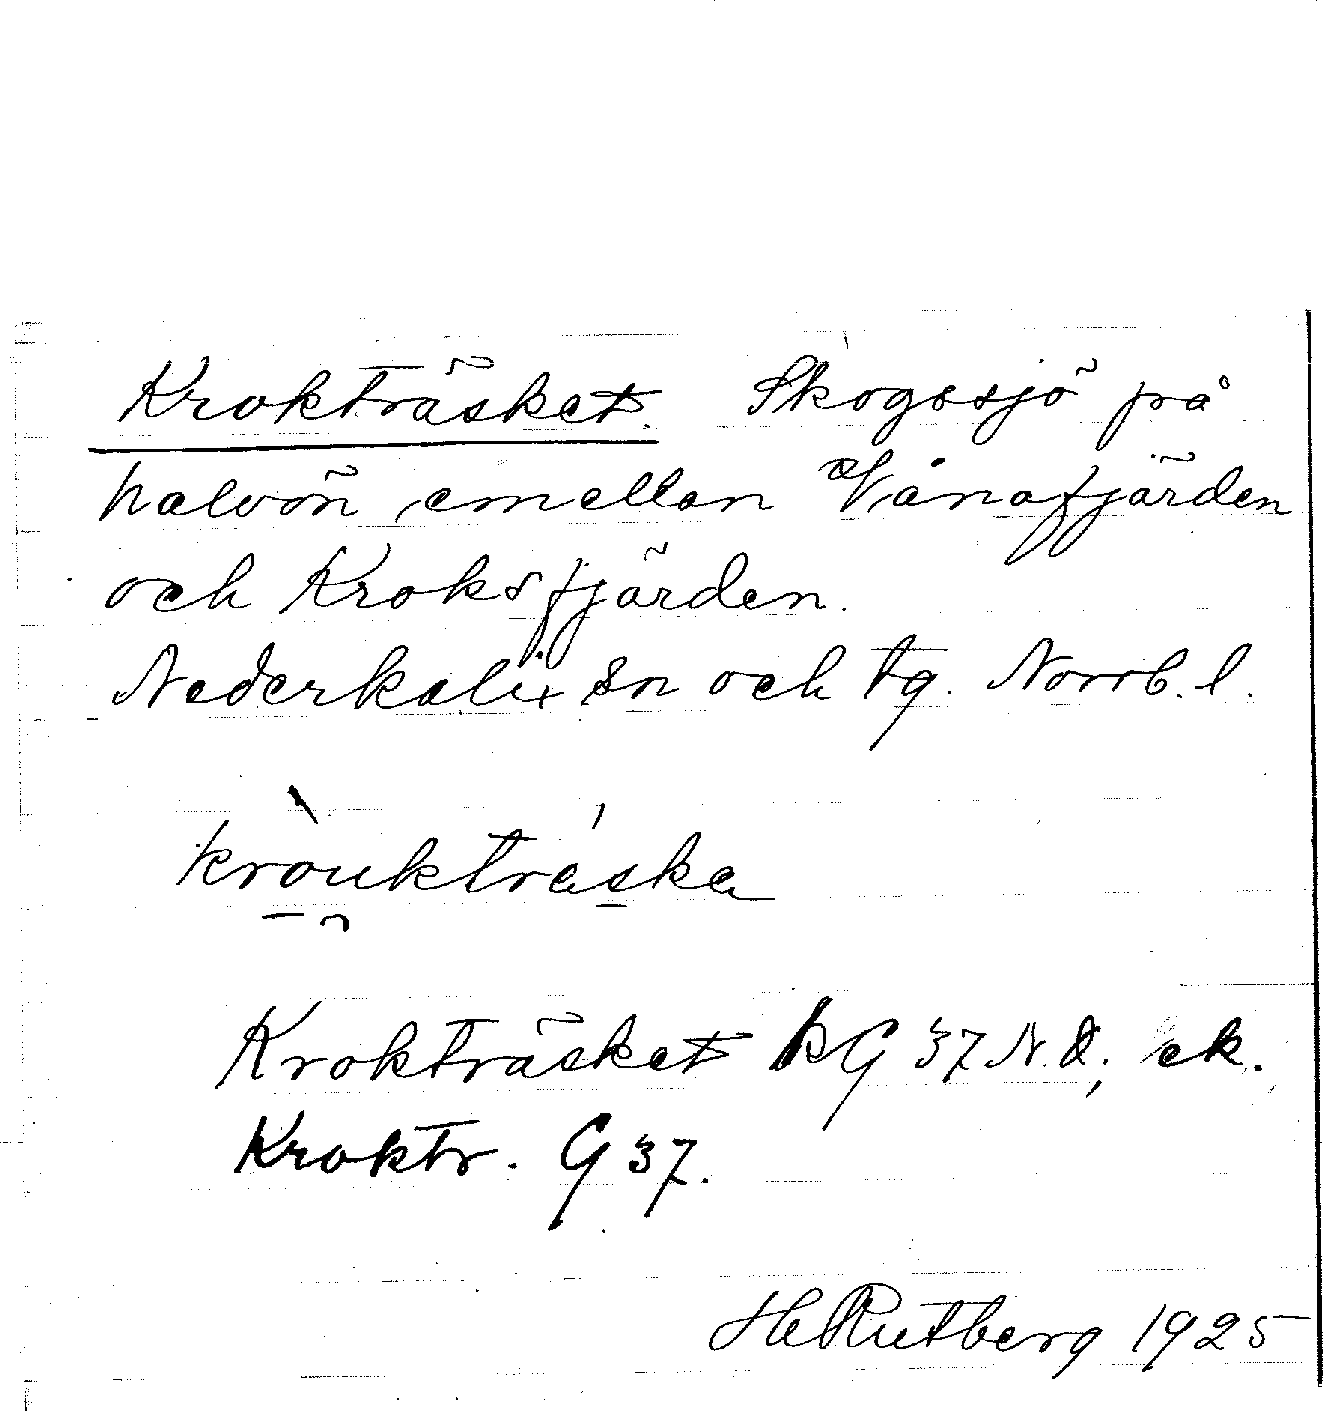 Krokträsket. Skogssjö på
halvön emellan Vånafjärden
och Kroksfjärden.
Nederkalix sn och tg. Norrb. l.
kròukträska
Krokträsket kG 37 N.O.; ek.
Kroktr. G 37.
H Rutberg 1925